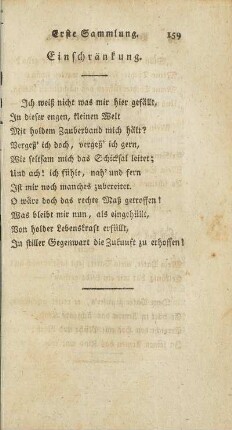 Erste Sammlung. 159
Einschränkung.
Ich weiß nicht was mir hier gefällt,
In dieser engen, kleinen Welt
Mit holdem Zauberband mich hält?
Vergeß' ich doch, vergeß' ich gern,
Wie seltsam mich das Schicksal leitet;
Und ach! ich fühle, nah' und fern
Ist mir noch manches zubereitet.
O wäre doch das rechte Maß getroffen!
Was bleibt mir nun, als eingehüllt,
Von holder Lebenskraft erfüllt,
In stiller Gegenwart die Zukunft zu erhoffen!